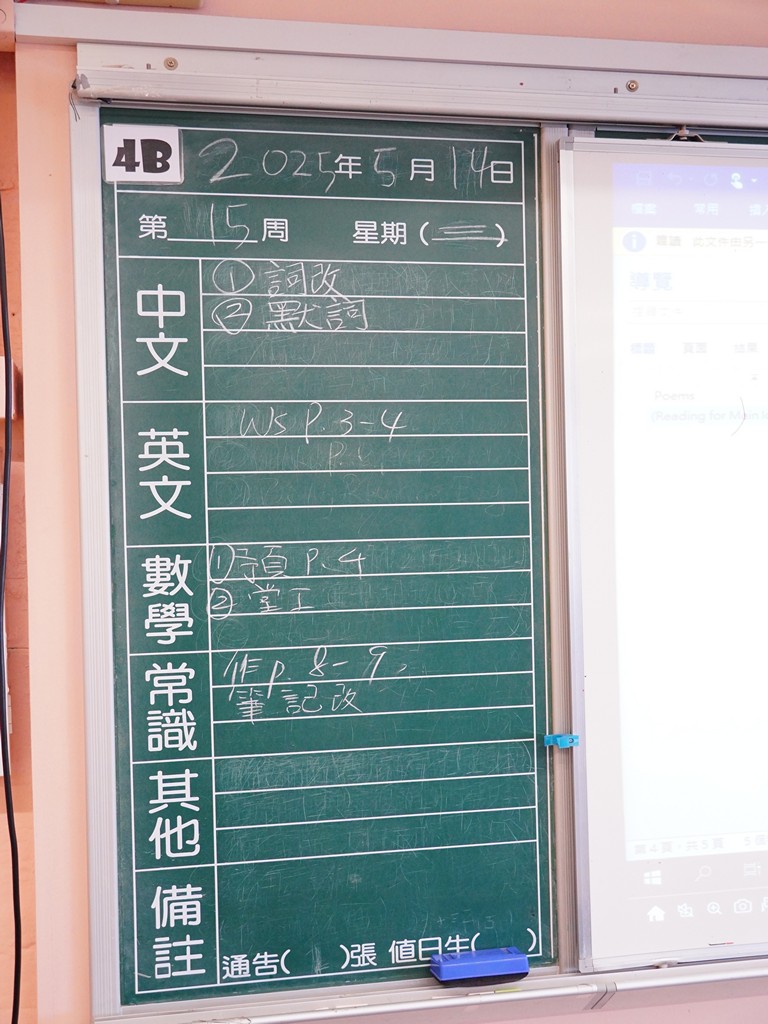 4B
2025年5月14日
第15周 星期(三)
中文
① 詞改
② 默詞
英文
WS P. 3-4
數學
① 預 P. 4
② 堂工
常識
作 p. 8-9
筆記改
其他
備註
通告( )張 值日生( )
常用
導覽
頁面
結果
Poems
(Reading for Main